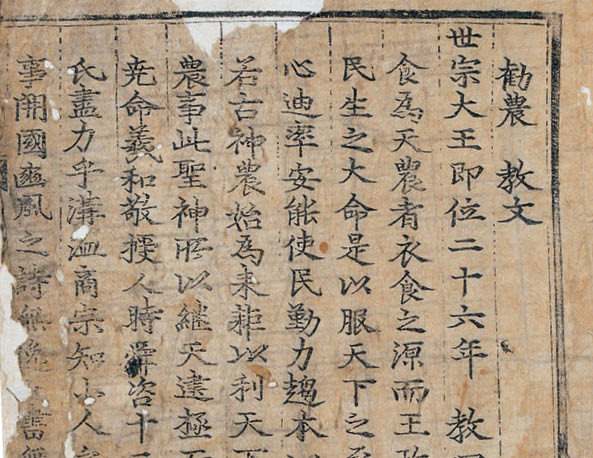 勧農 教文
世宗大王即位二十六年 教
食為天農者衣食之源而王
民生之大命是以服天下之
心迪率安能使民勤力趨本
若古神農始為耒耜以利天
農事此聖神所以継天建極
尭命羲和敬授人時舜咨十
氏盡力乎溝洫商宗知小人
事開國豳風之詩無逸 書